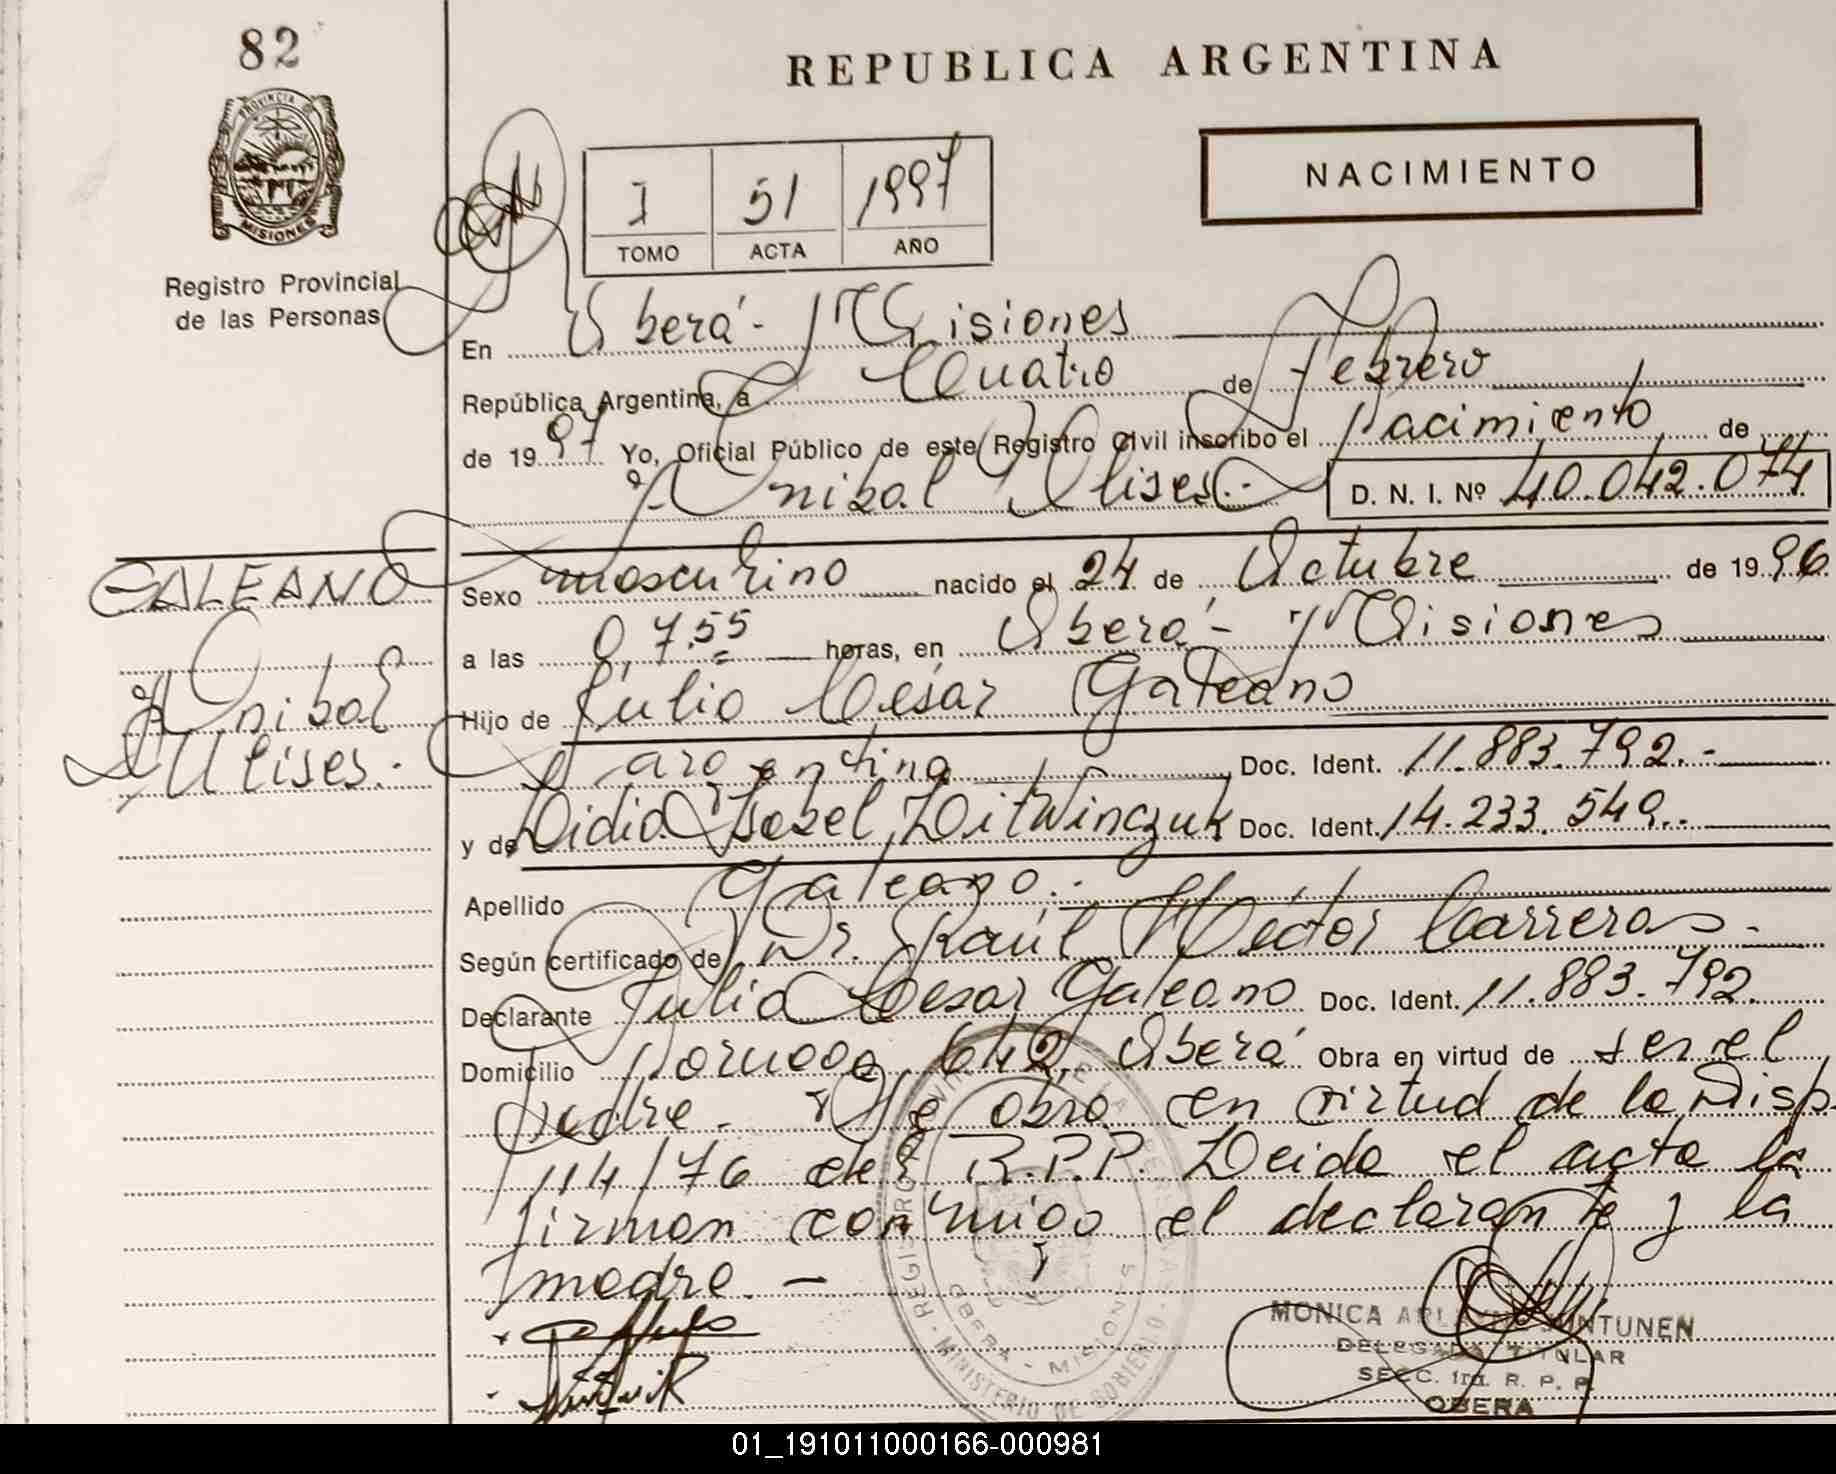 82
REPUBLICA ARGENTINA
PROVINCIA DE
MISIONES
Registro Provincial
de las Personas
I 51 1997
TOMO ACTA AÑO
NACIMIENTO
En Oberá - Misiones
República Argentina, a Cuatro de Febrero
de 1997 Yo, Oficial Público de este Registro Civil inscribo el nacimiento de
Anibal Ulises.- D. N. I. Nº 40.042.074
GALEANO
Anibal
Ulises.-
Sexo masculino nacido el 24 de Octubre de 1996
a las 07.55 horas, en Oberá - Misiones
Hijo de Julio César Galeano
argentino Doc. Ident. 11.883.792.-
y de Lidia Isabel Litwinczuk Doc. Ident. 14.233.549.-
Apellido Galeano.-
Según certificado de Dr. Raúl Héctor Carreras.-
Declarante Julio Cesar Galeano Doc. Ident. 11.883.792.
Domicilio 642, Oberá Obra en virtud de ser el
padre.- Se obra en virtud de la Disp.
114/76 del R.P.P. Leida el acta la
firman conmigo el declarante y la
madre.-
MONICA
DELEGADA TITULAR
SECC. 1ra. R. P. P.
OBERA
OBERA - MISIONES
MINISTERIO DE GOBIERNO
01_191011000166-000981